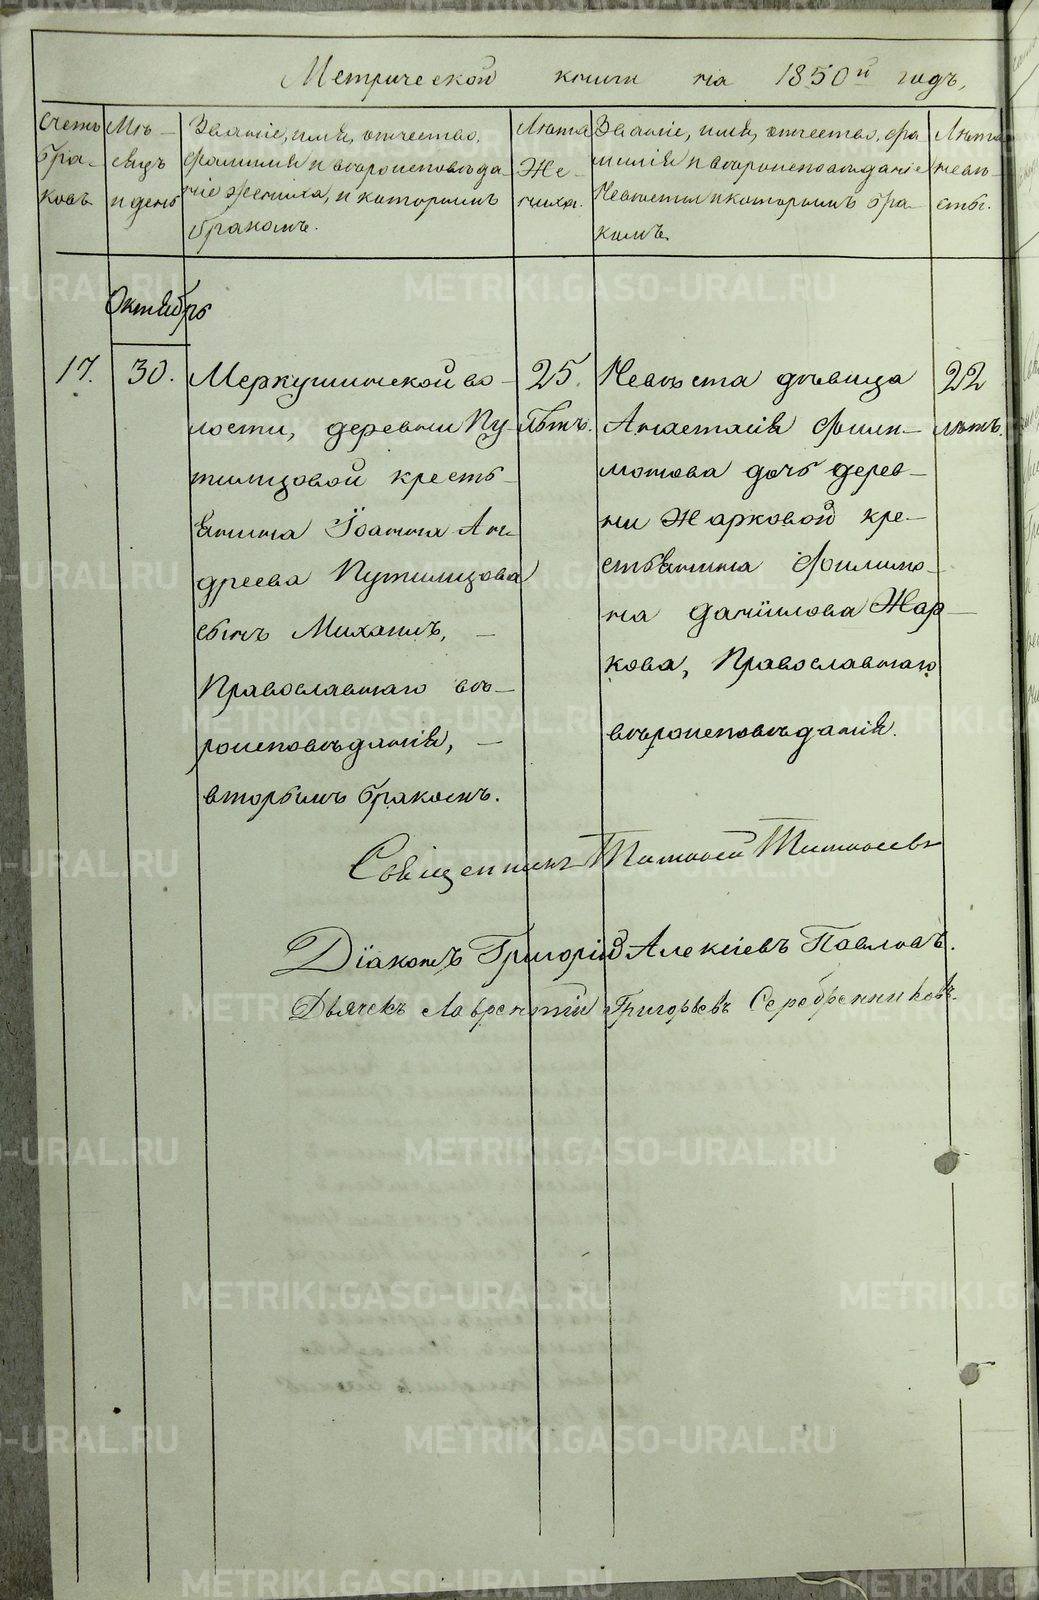 Метрической книги на 1850й годъ,
Счетъ бра- ковъ
Мѣ- сяцъ и день
Званіе, имя, отчество,
фамилія и вѣроисповѣда-
ніе жениха, и которымъ
бракомъ.
Лѣта Же- ниха.
Званіе, имя, отчество, фа-
милія и вѣроисповѣданіе
Невѣсты и которымъ бра-
комъ.
Лѣта невѣ- сты.
Октябрь
17.
30.
Меркушинской во-
лости, деревни Пу-
тилцовой кресть-
янина Іоанна Ан-
дреева Путилцова
сынъ Михаилъ, —
Православнаго вѣ-
роисповѣданія, —
вторымъ бракомъ.
25.
лѣтъ.
Невѣста дѣвица
Анастасія Фили-
монова дочь дерев-
ни Жарковой кре-
стьянина Филимо-
на Даніилова Жар-
кова, Православнаго
вѣроисповѣданія.
22
лѣтъ.
Священникъ Тимоѳей Тимоѳеевъ
Діаконъ Григорій Алексіевъ Павловъ.
Дьячекъ Лаврентій Григорьевъ Серебренниковъ.
METRIKI.GASO-URAL.RU